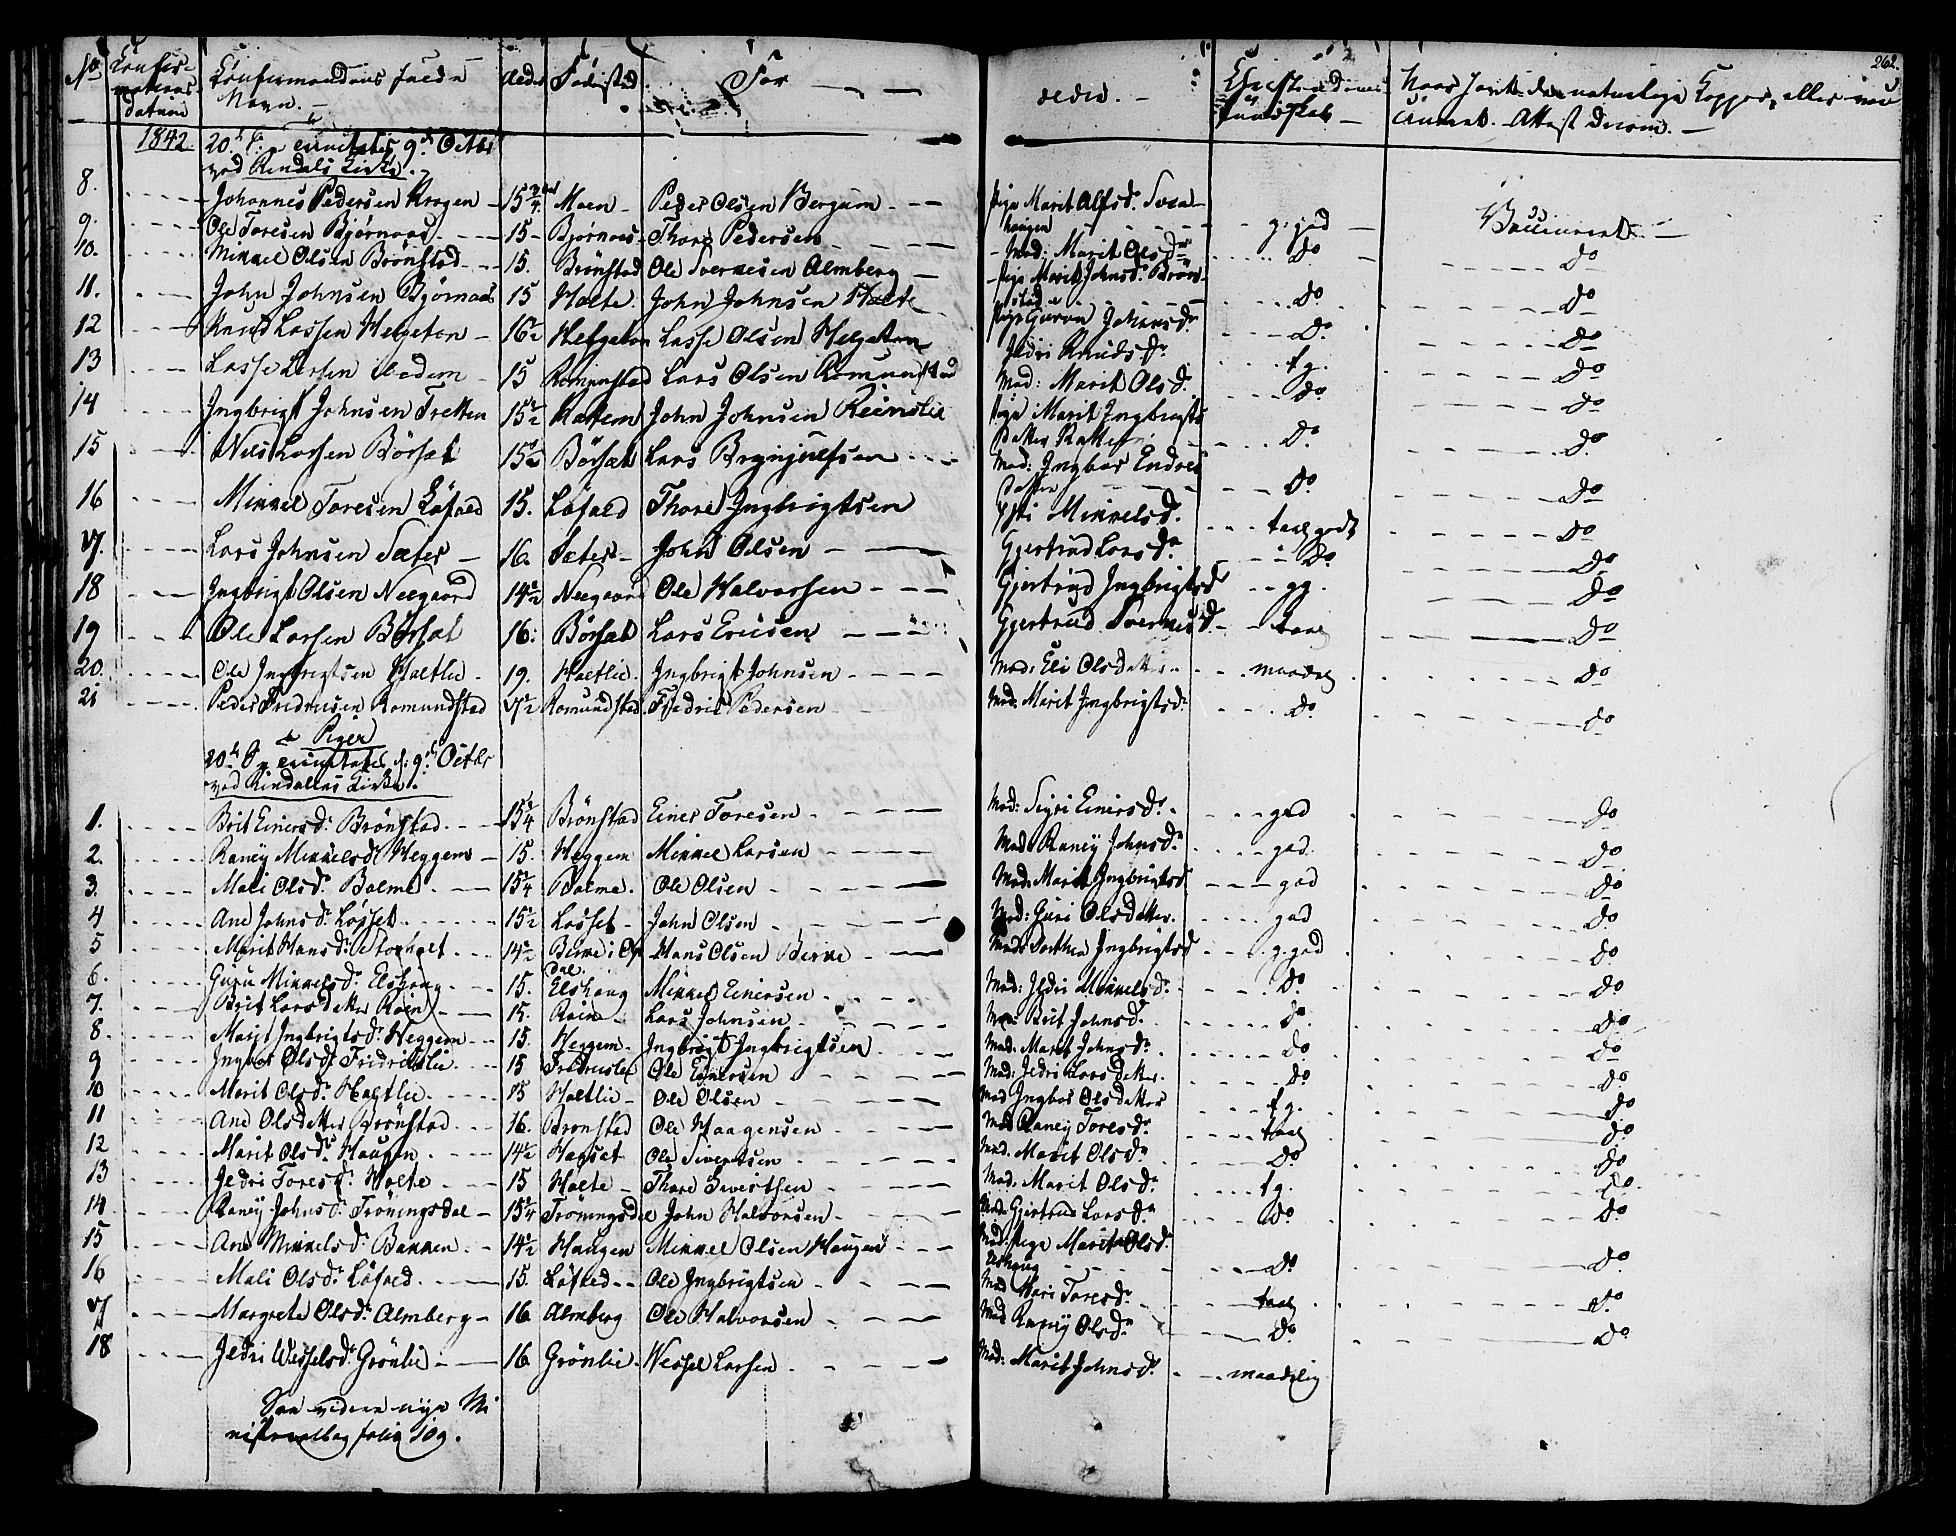 262.
No Confirmations Datum Confirmandens fulde Navn. — Alder Fødested For ældre. — Christendoms Kundskab — Naar havt de naturlige Kopper, eller vac cineret. Attest derom. —
1842. 20de S: e trinitatis 9de Octbr
ved Rindals Kirke.
8. Johannes Pedersen Krogen 15 3/4 Moen Peder Olsen Bergum Pige Marit Alfsd. g. god Vaccineret
9. Ole Toresen Bjørnaas 15 Bjørnaas Thore Pedersen Mad: Marit Olsdr Do Do
10. Mikkel Olsen Brönstad 15. Brönstad Ole Sivertsen Almberg Pige Marit Johnsdr Brönstad Do Do
11. John Johnsen Bjørnaas 15 Holte John Johnsen Holte Pige Johansdr Do Do
12 Knud Lassen Helgeton 16 1/2 Helgeton Lasse Olsen Helgeton Jldri Knudsdr tg. Do
13 Lasse Larsen 15 Romundstad Lars Olsen Romundstad Mad: Marit Olsdr Do Do
14 Ingbrigt Johnsen Tretten 15 1/2 John Johnsen Reinslie Pige Marit Ingbrigts datter Do Do
15 Nils Larsen Börset 15 1/2 Börset Lars Brynjulfsen Mad: Ingbor Endres datter Do Do
16 Mikkel Toresen Løfald 15. Løfald Thore Ingbrigtsen Mikkelsd. taal. godt Do
17. Lars Johnsen Sæter 16. Sæter John Olsen Gjertrud Larsdr Do Do
18 Ingbrigt Olsen Neegaard 14 1/2 Neegaard Ole Halvorsen Gjertrud Ingbrigtsd gg. Do
19 Ole Larsen Börset 16. Börset Lars Ericsen Gjertrud taal Do
20. Ole Ingbrigtsen Haltlie 19. Haltlie Ingbrigt Johnsen Mad: Eli Olsdatter maadel Do
21 Peder Fredriksen Romundstad 17 1/2 Romundstad Fredrik Pedersen Mad. Marit Ingbrigtsdr Do Do
Piger
20de S. e trinitatis d: 9de Octbr
ved Rindallens Kirke.
1. Brit Einersdr Brönstad 15 1/4 Brönstad Einer Toresen Mad: Sigri Einersdr god Do
2. Raney Mikkelsdr Heggem 15. Heggem Mikkel Larsen Mad. Raney Johnsdr god Do
3. Mali Olsdr Bolme 15 1/4 Bolme Ole Olsen Mad. Marit Ingbrigtsd god Do
4 Ane Johnsdr Løset 15 1/2 Løset John Olsen Mad: Guri Olsdatter god Do
5 Marit Hansdr 14 1/2 Hans Olsen Mad. Dorthea Ingbrigtsd g. god Do
6. Guru Mikkelsdr Elshoug 15. Elshoug Mikkel Einersen Mad: Jldri Mikkelsdr Do Do
7. Brit Larsdatter Røen 15. Røen Lars Johnsen Brit Johnsd. Do Do
8. Marit Ingbrigtsdr Heggem 15. Heggem Ingbrigt Ingbrigtsen Mad. Marit Johnsdr Do Do
9 Ingbor Olsdr Fridrikslie 15 Fredrikslie Ole Einersen Mad: Jldri Larsdatter Do Do
10 Marit Olsdr Haltlie 15 Haltlie Ole Olsen Mad Ingbor Olsdatter tg. Do
11 Ane Olsdatter Brönstad 16. Brönstad Ole Haagensen Mad Raney Toresdr taal Do
12 Marit Olsdr Haugen 14 1/2 Ole Sivertsen Mad. Marit Olsdr Do Do
13 Jldri Toresdr Holte 15 Holte Thore Sivertsen Mad. Marit Olsdr tg. Do
14 Raney Johnsdr Tröningsdal 15 1/4 Tröningsdal John Halvorsen Mad. Gjertrud Larsdr Do Do
15 Ane Mikkelsdr Bakken 14 1/2 Haugen Mikkel Olsen Haugen Mad. Pige Marit Olsd. Do Do
16 Mali Olsdr Løfald 15. Løfald Ole Ingbrigtsen Mad Toresdr taal Do
17 Margrete Olsdr Almberg 16 Almberg Ole Halvorsen Mad Raney Olsdr Do Do
18 Jldri Wesselsdr Grönlie 16. Grönlie Wessel Larsen Mad: Marit Johnsdr maadelig
See videre nye Mi
nisterialbog folio 109.